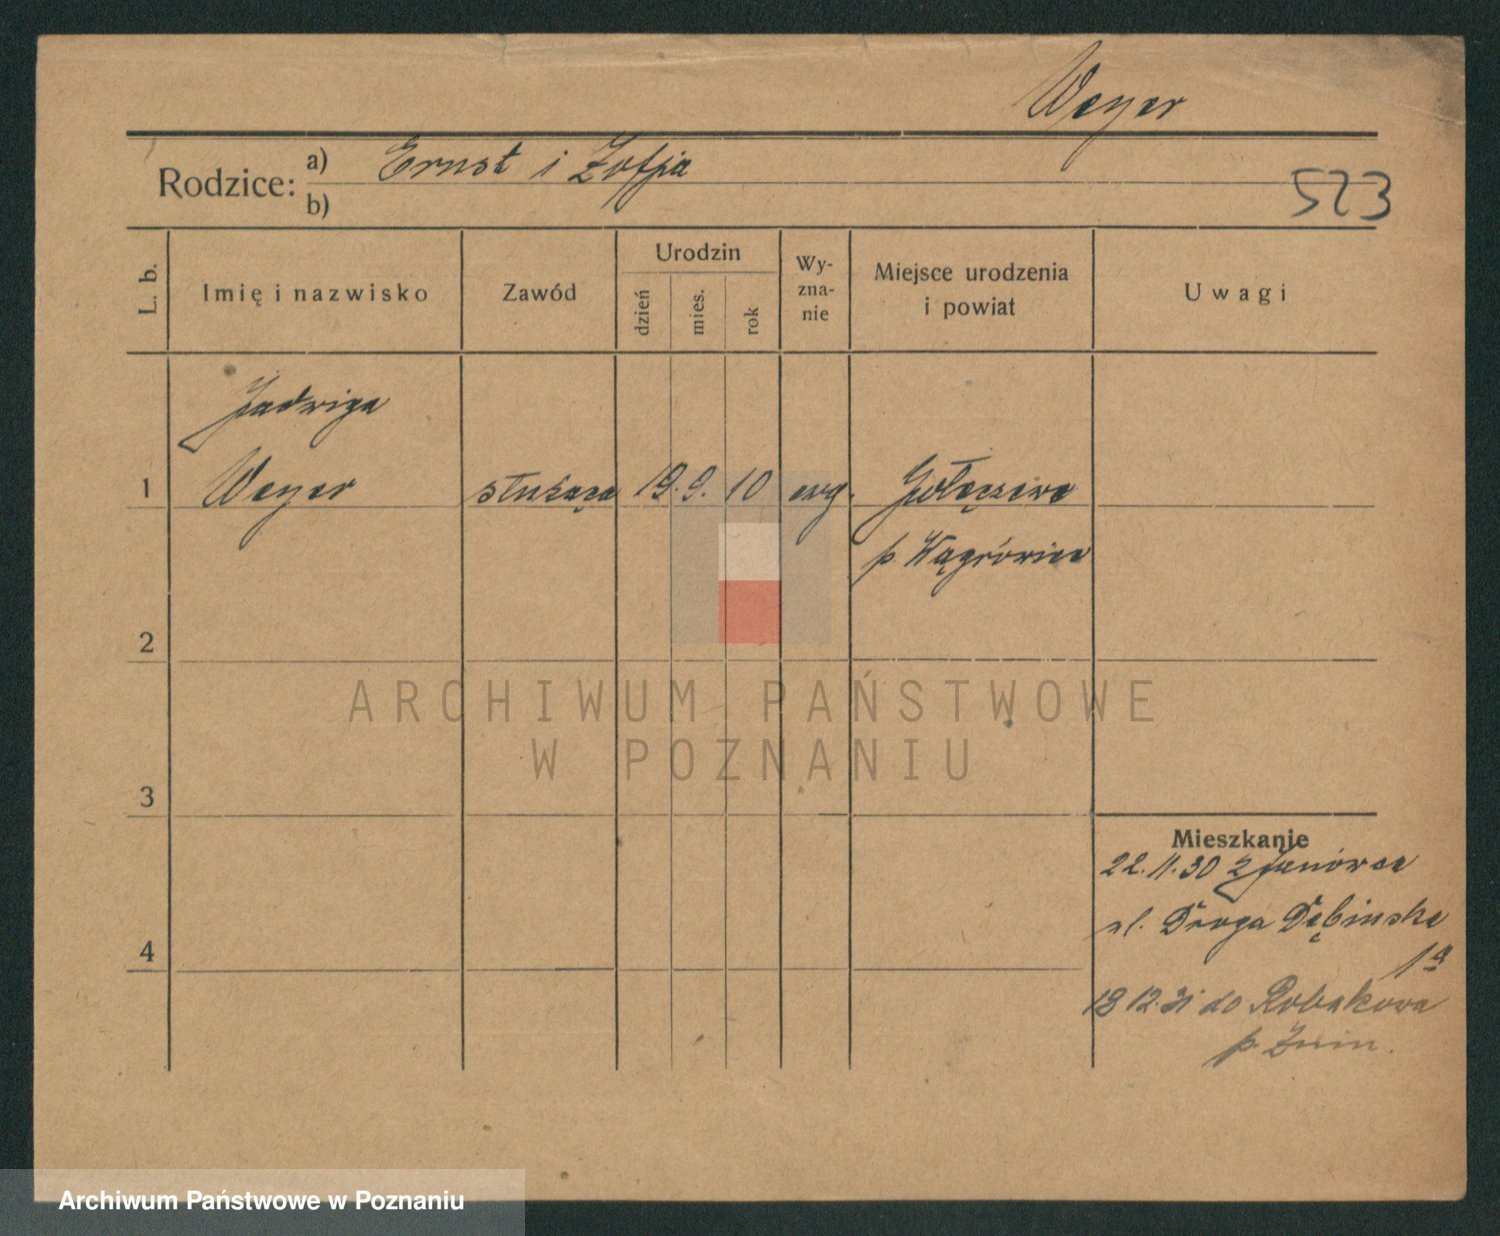 Weyer
Rodzice: a) Ernst i Zofja
b)
523
L. b.
Imię i nazwisko
Zawód
Urodzin
dzień
mies.
rok
Wy-
zna-
nie
Miejsce urodzenia
i powiat
Uwagi
Jadwiga
1 Weyer służąca 19. 9. 10 ewg. Gołęczewo
p. Wągrówiec
2
3
4
ARCHIWUM PAŃSTWOWE
W POZNANIU
Mieszkanie
22.11.30 z Janówca
ul. Droga Dębinska
1a
18 12.31 do Robakowa
p. Żnin.
Archiwum Państwowe w Poznaniu